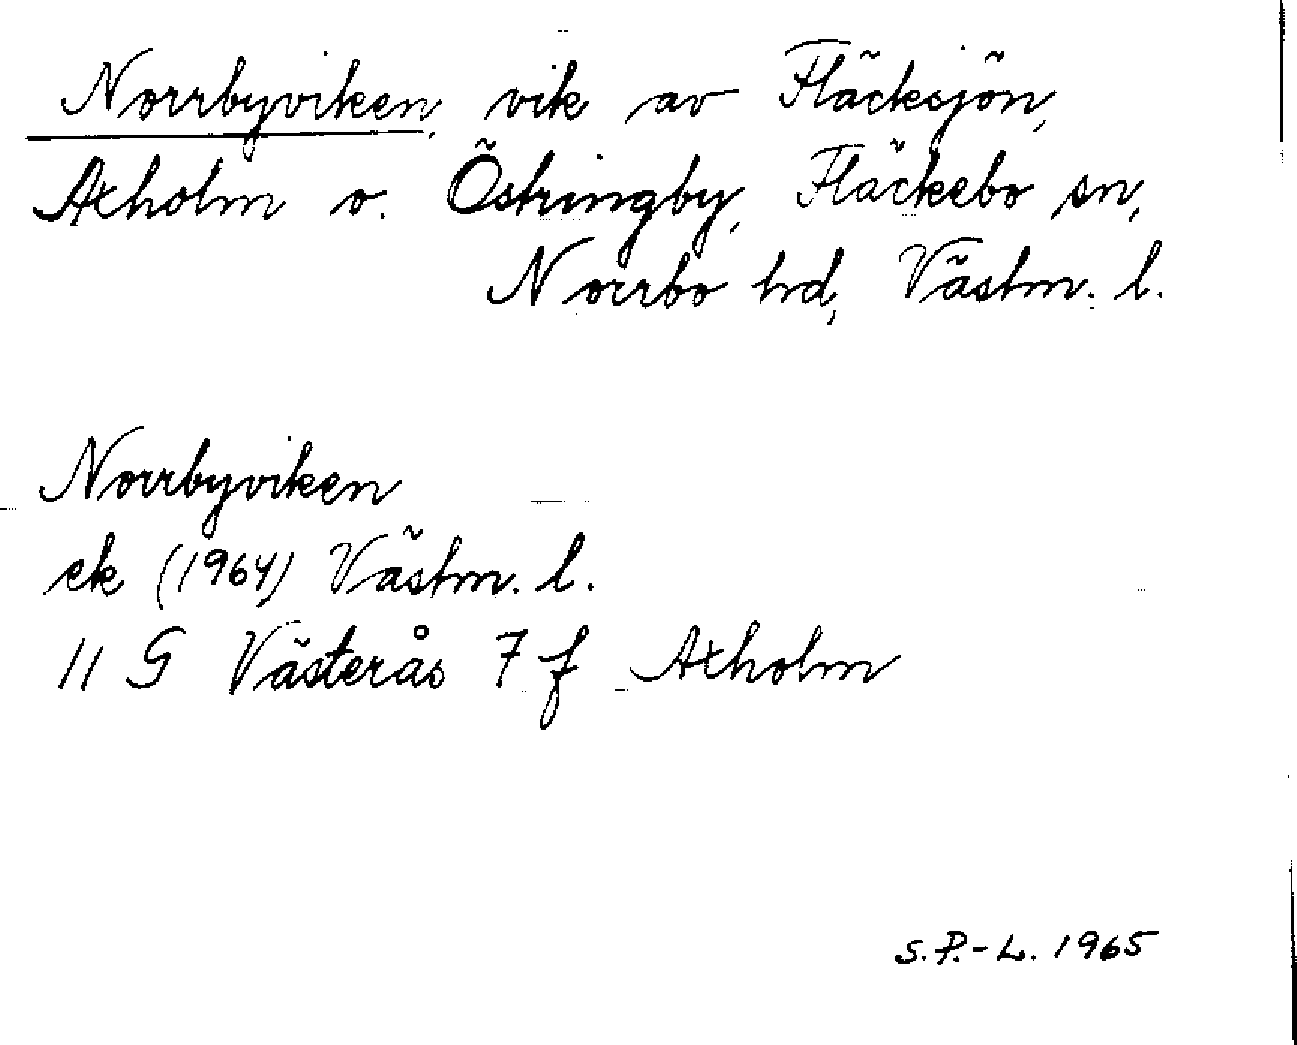 Norrbyviken, vik av Fläcksjön,
Axholm o. Östringby, Fläckebo sn,
Norrbo hd, Västm. l.
Norrbyviken
ek (1964) Västm. l.
11 G Västerås 7 f Axholm
S.P.-L. 1965